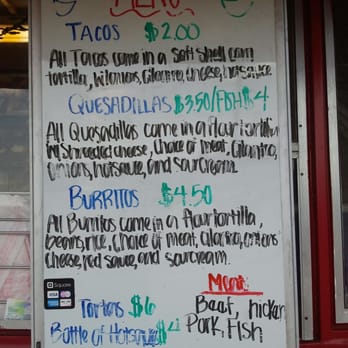 MENU
TACOS $2.00
All Tacos come in a soft shell corn
tortilla, w/onions, Cilantro, cheese, hotsauce
QUESADILLAS $3.50/FISH $4
All Quesadillas come in a flour tortilla
W/ Shredded cheese, Choice of meat, Cilantro,
onions, hotsauce, and sourcream.
BURRITOS $4.50
All Burritos come in a flour tortilla,
beans, rice, Choice of meat, cilantro, onions
cheese, red sauce, and sourcream.
Square
VISA
Meat
Tortas $6
Beef, hicken
Pork, Fish
Bottle of Hotsauce $4